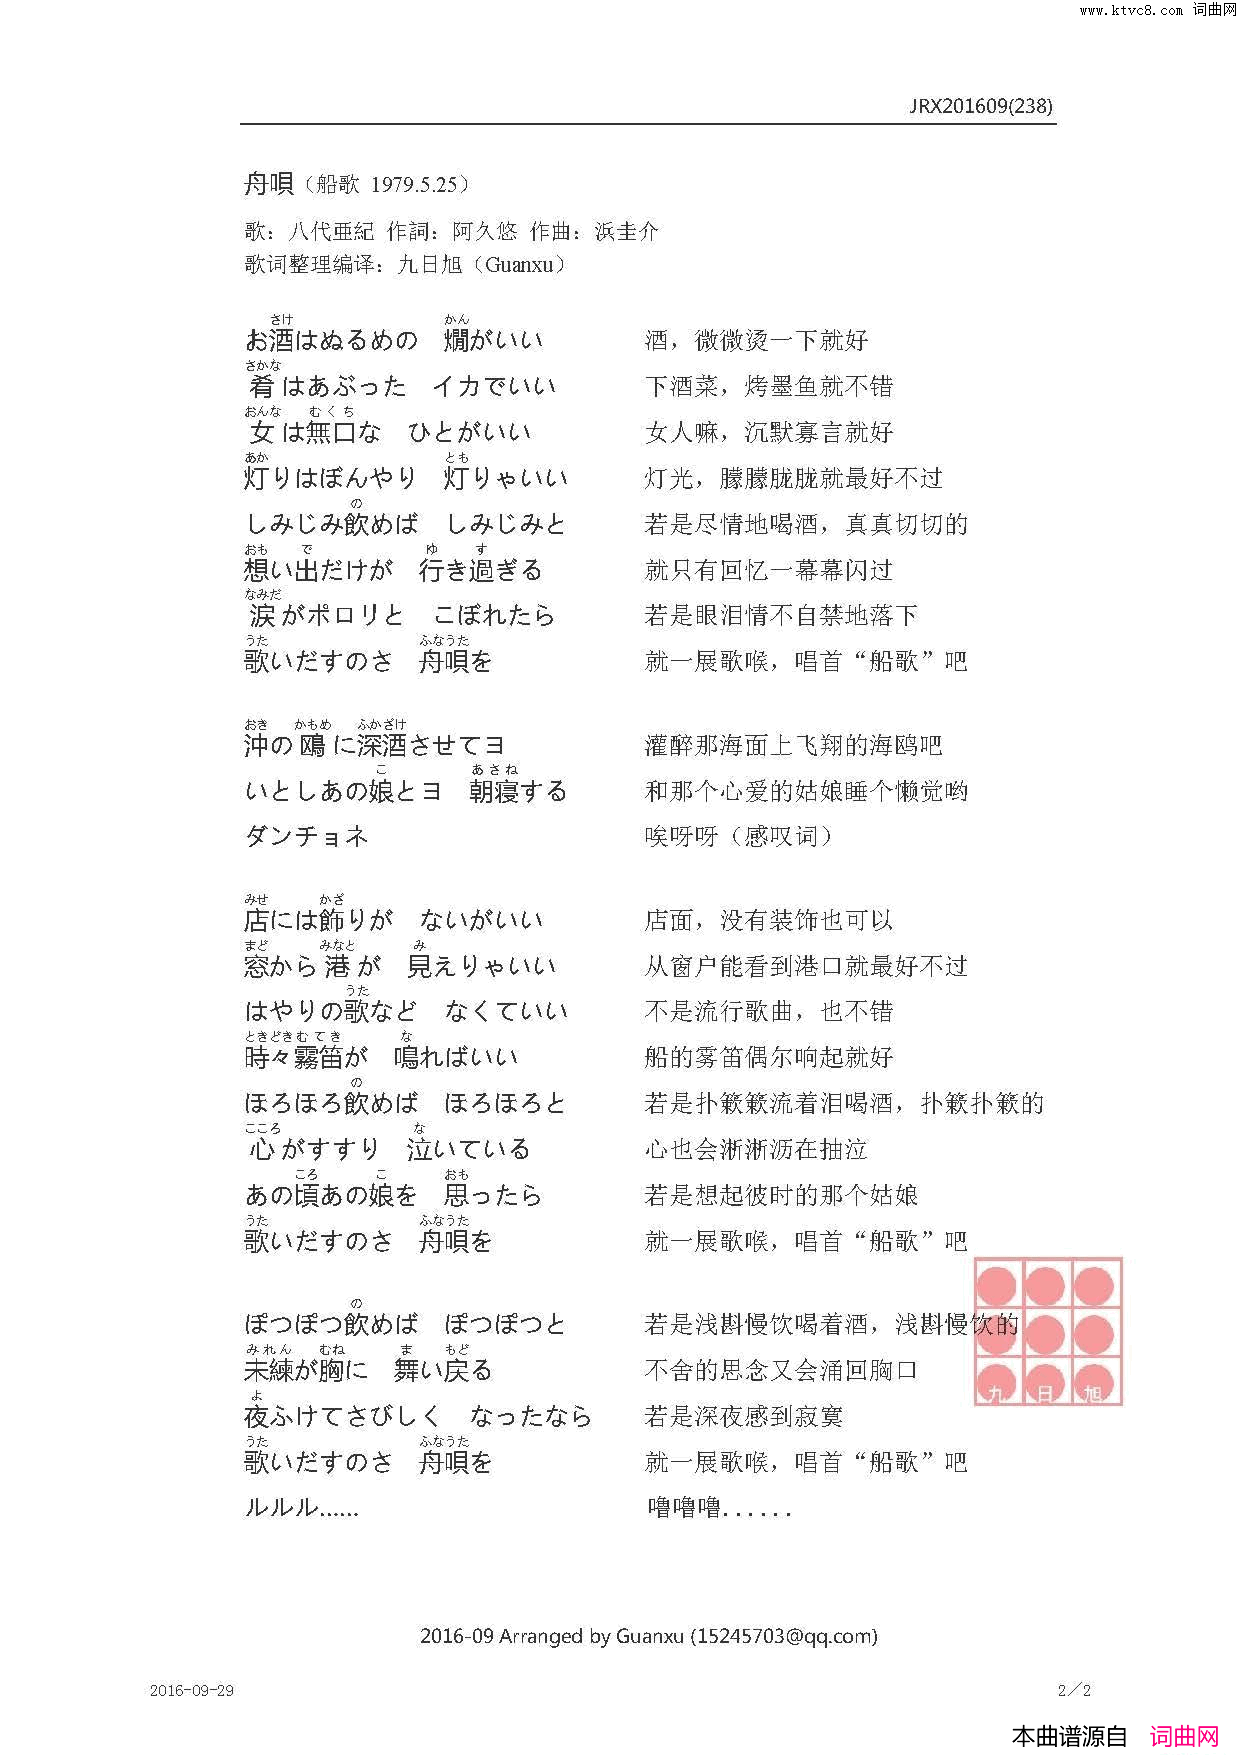 www.ktvc8.com 词曲网
JRX201609(238)
舟唄（船歌 1979.5.25）
歌：八代亜紀 作詞：阿久悠 作曲：浜圭介
歌词整理编译：九日旭（Guanxu）
さけ かん
お酒はぬるめの 燗がいい 酒，微微烫一下就好
さかな
肴はあぶった イカでいい 下酒菜，烤墨鱼就不错
おんな むくち
女は無口な ひとがいい 女人嘛，沉默寡言就好
あか とも
灯りはぼんやり 灯りゃいい 灯光，朦朦胧胧就最好不过
の
しみじみ飲めば しみじみと 若是尽情地喝酒，真真切切的
おも で ゆ す
想い出だけが 行き過ぎる 就只有回忆一幕幕闪过
なみだ
涙がポロリと こぼれたら 若是眼泪情不自禁地落下
うた ふなうた
歌いだすのさ 舟唄を 就一展歌喉，唱首“船歌”吧
おき かもめ ふかざけ
沖の鴎に深酒させてヨ 灌醉那海面上飞翔的海鸥吧
こ あさね
いとしあの娘とヨ 朝寝する 和那个心爱的姑娘睡个懒觉哟
ダンチョネ 唉呀呀（感叹词）
みせ かざ
店には飾りが ないがいい 店面，没有装饰也可以
まど みなと み
窓から港が 見えりゃいい 从窗户能看到港口就最好不过
うた
はやりの歌など なくていい 不是流行歌曲，也不错
ときどきむてき な
時々霧笛が 鳴ればいい 船的雾笛偶尔响起就好
の
ほろほろ飲めば ほろほろと 若是扑簌簌流着泪喝酒，扑簌扑簌的
こころ な
心がすすり 泣いている 心也会淅淅沥在抽泣
ころ こ おも
あの頃あの娘を 思ったら 若是想起彼时的那个姑娘
うた ふなうた
歌いだすのさ 舟唄を 就一展歌喉，唱首“船歌”吧
の
ぽつぽつ飲めば ぽつぽつと 若是浅斟慢饮喝着酒，浅斟慢饮的
みれん むね ま もど
未練が胸に 舞い戻る 不舍的思念又会涌回胸口
九 日 旭
よ
夜ふけてさびしく なったなら 若是深夜感到寂寞
うた ふなうた
歌いだすのさ 舟唄を 就一展歌喉，唱首“船歌”吧
ルルル...... 噜噜噜......
2016-09 Arranged by Guanxu (15245703@qq.com)
2016-09-29 2／2
本曲谱源自 词曲网